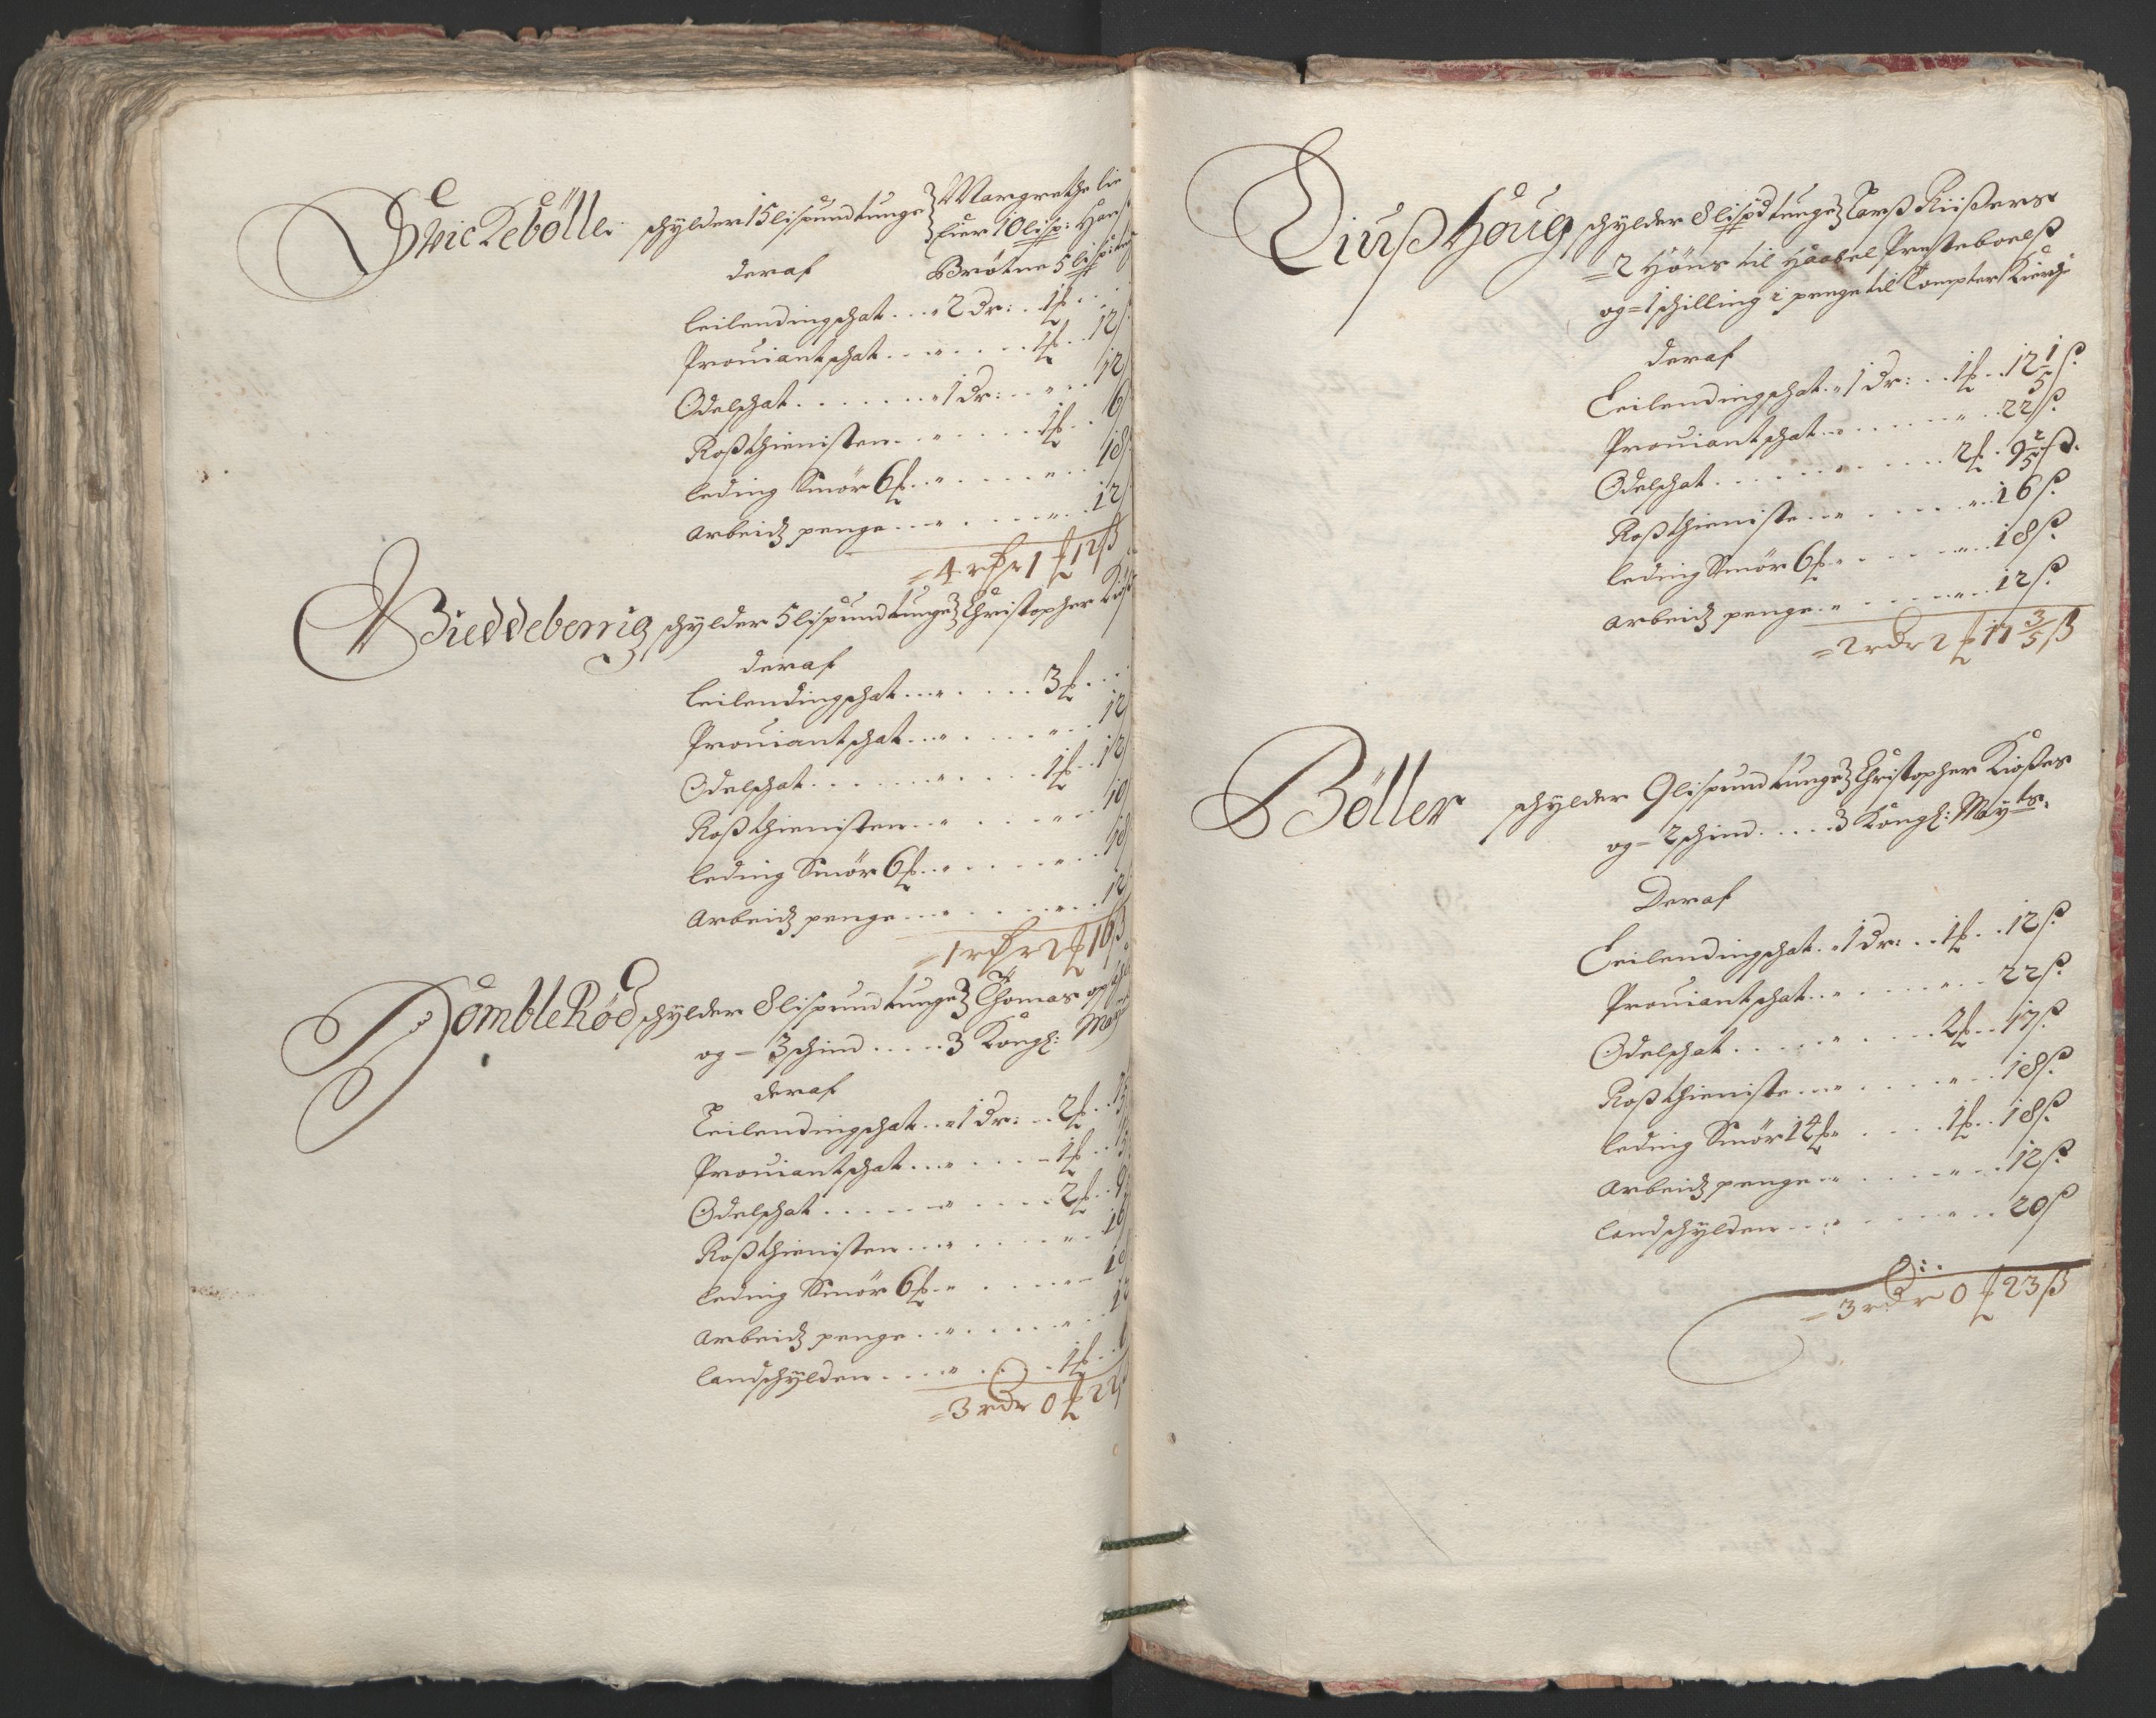 Swickebölle schylder 15 lispund tunge } Margrethe lie
Eier 10 lisp: Hans
deraf Brötne 5 lispund
leilendingschat .. 2 dr: . 1 ƒ ..
Prouiantschat .... 1 ƒ .. 12
Odelschat ...... 1 dr: .. 12
Rossthienisten .... 1 ƒ .. 6
leding Smör 6 ƒ .... 18
arbeidz penge .... 12
= 4 rdr 1 ƒ 12 ß
Gieddeberrig schylder 5 lispund tunge } Christopher
deraf
leilendingschat .... 3 ƒ ..
Prouiantschat .... 12
Odelschat ...... 1 ƒ .. 12
Rossthienisten .... 10
leding Smör 6 ƒ .... 18
arbeidz penge .... 12
= 1 rdr 2 ƒ 16 ß
Homblerød schylder 8 lispund tunge } Thomas
og = 3 schind ..... 3 Kongl: May
deraf
Leilendingschat .. 1 dr: .. 2 ƒ .. 15
Prouiantschat .... 1 ƒ .. 15
Odelschat ...... 2 ƒ .. 9
Rossthienisten .... 16
leding Smör 6 ƒ .... 18
arbeidz penge .... 12
landschylden .... 1 ƒ .. 6
= 3 rdr 0 ƒ 22
Diusshoug schylder 8 lispd tunge } Lars Riisers
= 2 Höns til Haabel Presteboels
og = 1 schilling i penge til Tompter Kierch
deraf
Leilendingschat .. 1 dr: .. 1 ƒ .. 12 1/5 ß.
Prouiantschat ...... 22 ß.
Odelschat ........ 2 ƒ . 9 2/5 ß.
Rossthieniste ...... 16 ß.
leding Smör 6 ƒ ...... 18 ß.
arbeidz penge ...... 12 ß.
= 2 rdr 2 ƒ 17 3/5 ß
Böller schylder 9 lispund tunge } Christopher Kioses
og = 2 schind ..... 3 Kongl: Mayts.
Deraf
Leilendingschat .. 1 dr: .. 1 ƒ .. 12 ß.
Prouiantschat ...... 22 ß.
Odelschat ........ 2 ƒ .. 17 ß.
Rossthieniste ...... 18 ß.
leding Smör 12 ƒ .... 1 ƒ .. 18 ß.
arbeidz penge ...... 12 ß.
landschylden ...... 20 ß
= 3 rdr 0 ƒ 23 ß